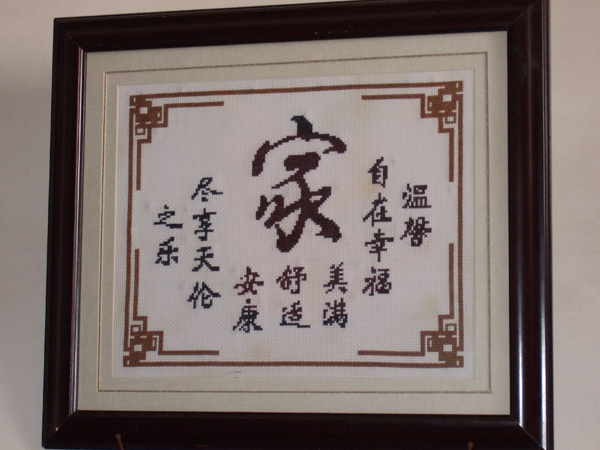 家
温馨
自在幸福
美满
舒适
安康
尽享天伦
之乐